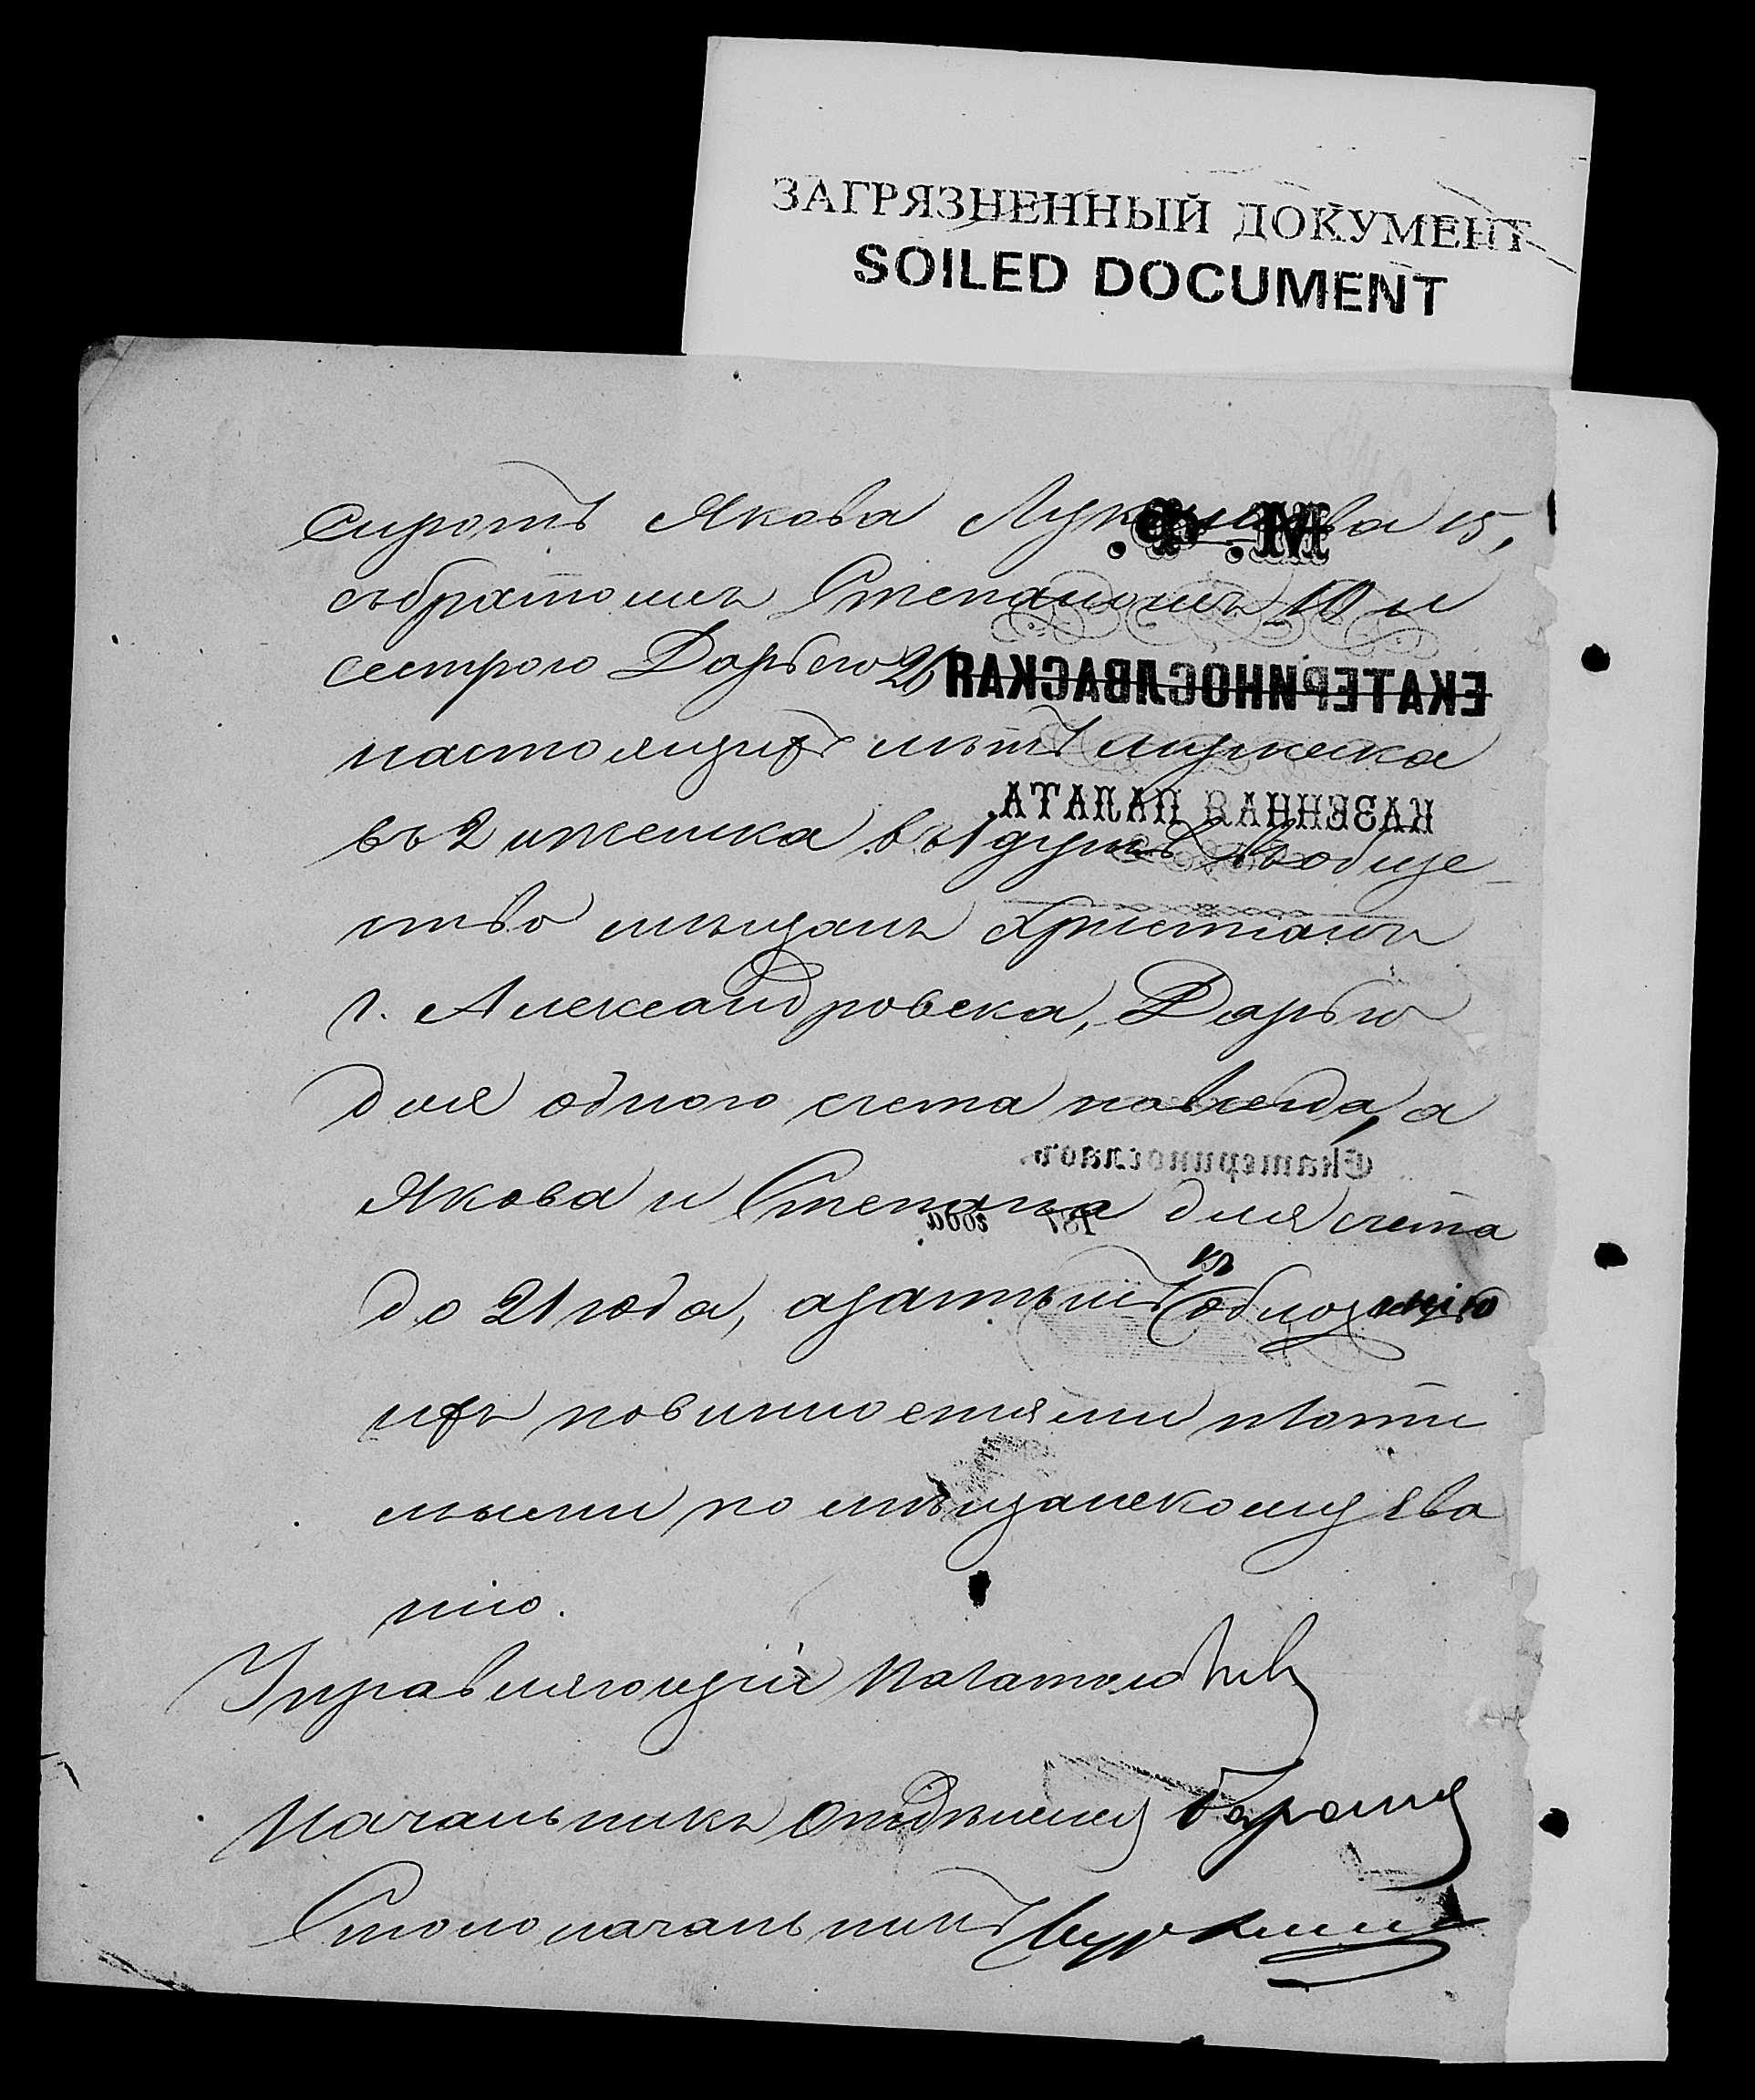 ЗАГРЯЗНЕННЫЙ ДОКУМЕНТ
SOILED DOCUMENT
сиротъ Якова 15,
съ братомъ Степаномъ 10 и
сестрою Дарьею 26
М. Ф.
ЕКАТЕРИНОСЛАВСКАЯ
настоящихъ лѣтъ мужеска
КАЗЕННАЯ ПАЛАТА.
въ 2 и женска въ 1 душѣ въ обще
ство мѣщанъ христіанъ
г. Александровска, Дарью
для одного счета навсегда, а
Екатеринославъ.
Якова и Степана для счета
187 года
до 21 года, а затѣмъ къ обложенію
ихъ повинностями плати
мыми по мѣщанскому зва
нію.
Управляющій Палатою
Начальникъ Отдѣленія
Столоначальникъ